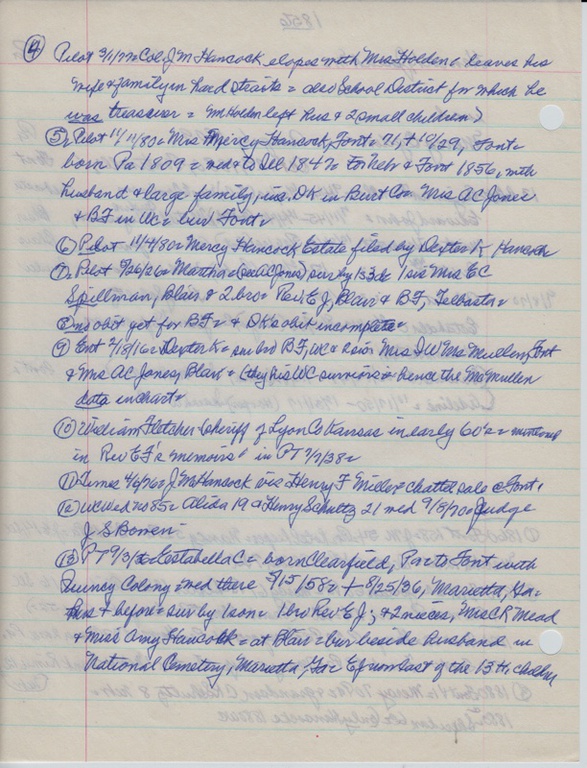 ④ Pilot 3/1/77= Col J M Hancock elopes with Mrs Holden & leaves his
wife & family in hard straits = also School District for which he
was treasurer = Mr Holden left hus & 2 small children>
⑤ Pilot 11/11/80= Mrs Mercy Hancock, Font= 71, + 10/29, Font=
born Pa 1809 = md to Ill 1847= to Neb & Font 1856, with
husband & large family, inc. DK in Burt Co= Mrs AC Jones
& BF in WC= bur Font=
⑥ Pilot 11/4/80= Mercy Hancock Estate filed by Dexter K Hancock
⑦ Pilot 9/26/26= Martha= (see AC Jones) sur by 1s 3d= 1 sis Mrs EC
Spillman, Blair & 2 bro= Rev EJ, Blair & BF, Telbasta=
⑧ no obit yet for BF= & DK's obit incomplete=
⑨ Ent 2/18/16= Dexter K= sur bro BF, WC & 2 sis Mrs IW McMullen, Font
& Mrs AC Jones, Blair= (they his WC survivors= hence the McMullen
data in chart=
⑩ William Fletcher sheriff of Lyon Co Kansas in early 60's= mentioned
in Rev EJ's memoirs in PT 7/7/38=
⑪ Times 4/6/76= J McHancock vs Henry F Miller= chattel sale @ Font=
⑫ WC Wed no 85= Alida 19 @ Henry Schultz 21 med 9/8/70= Judge
J S Bowen=
⑬ PT 9/3/36= Costabella C= born Clearfield, Pa= to Font with
Quincy Colony= med there 5/15/58= + 8/25/36, Marietta, Ga=
hus + before= sur by 1 son= 1 bro Rev EJ; & 2 nieces, Mrs CR Mead
& Miss Amy Hancock= at Blair= bur beside husband in
National Cemetery, Marietta, Ga= EJ now last of the 13 H. children